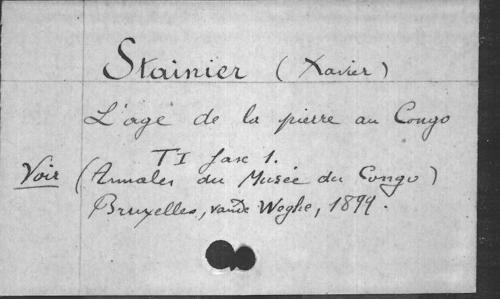 Stainier (Xavier)
L'age de la pierre au Congo
T I fasc 1.
Voir (Annales du Musée du Congo)
Bruxelles, vande Weghe, 1899.